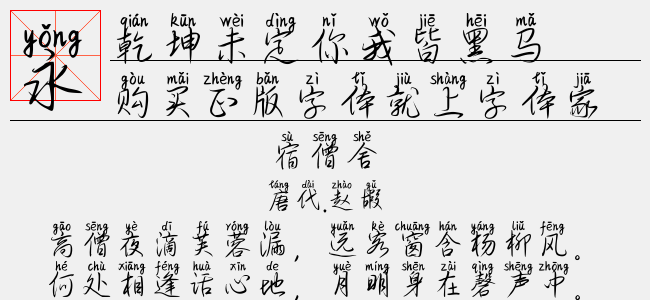 yǒng
永
qián kūn wèi dìng nǐ wǒ jiē hēi mǎ
乾坤未定你我皆黑马
gòu mǎi zhèng bǎn zì tǐ jiù shàng zì tǐ jiā
购买正版字体就上字体家
sù sēng shě
宿僧舍
táng dài zhào gǔ
唐代.赵嘏
gāo sēng yè dī fú róng lòu yuǎn kè chuāng hán yáng liǔ fēng
高僧夜滴芙蓉漏，远客窗含杨柳风。
hé chù xiāng féng huà xīn de yuè míng shēn zài qìng shēng zhōng
何处相逢话心地，月明身在磬声中。